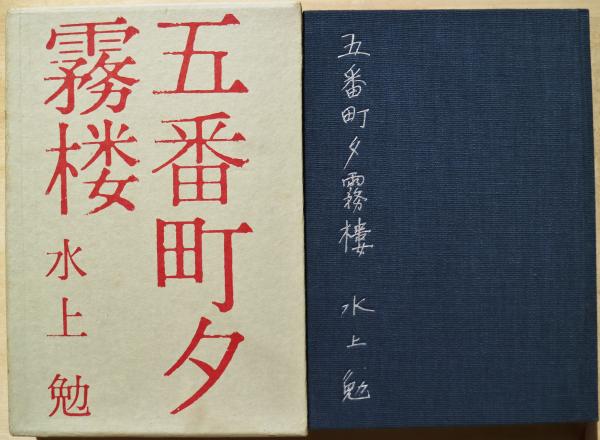 五番町夕
霧楼
水上 勉
五番町夕霧楼 水上勉